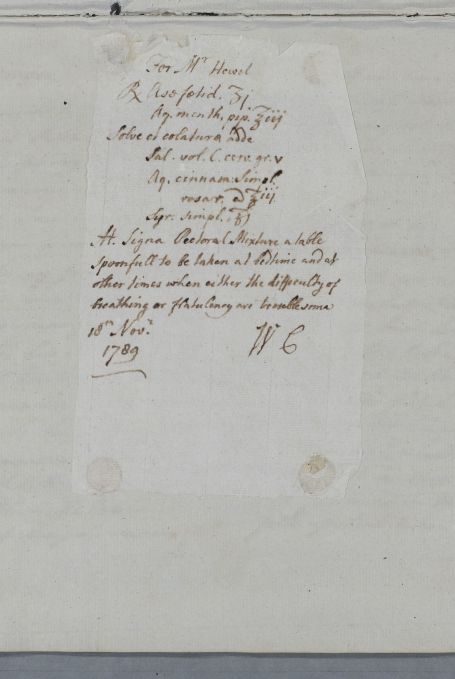 For Mr Hewel
℞ Asæ fœtid. ʒj
Aq. menth. pip. ℥iij
Solve et colaturæ adde
Sal. vol. C. cerv. gr. v
Aq. cinnam: Simpl.
rosar. a ℥iij
Syr: simpl. ℥j
M. Signa Pectoral Mixture a table
spoonfull to be taken at bedtime and at
other times when either the difficulty of
breathing or flatulency are troublesome
18th Novr.
1789 W C